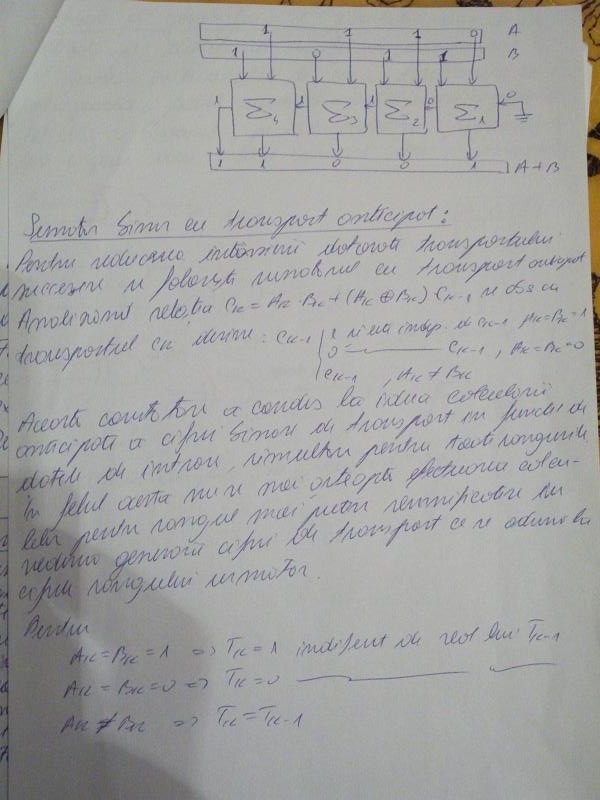 1 1 1 0 A
1 0 1 1 B
1 Σ4 1 Σ3 1 Σ2 0 Σ1 0
1 1 0 0 1 A+B
Sumator binar cu transport anticipat:
Pentru reducerea întârzierii datorată transportului
succesiv se folosește sumatorul cu transport anticipat
Analizând relația CK = AK · BK + (AK ⊕ BK) CK-1 se obs ca
transportul CK devine: CK-1 { 1 indep. de CK-1, AK=BK=1
0 —— CK-1, AK=BK=0
CK-1, AK≠BK
Aceasta a condus la ideea calculării
anticipate a cifrei binare de transport în funcție de
datele de intrare, simultan pentru toate rangurile
în felul acesta nu se mai așteaptă efectuarea calcu-
lelor pentru rangul mai puțin semnificativ în
vederea generării cifrei de transport ce se aduna la
cifrele rangului următor.
Pentru
AK = BK = 1 => TK = 1 indifent de val lui TK-1
AK = BK = 0 => TK = 0 ——
AK ≠ BK => TK = TK-1